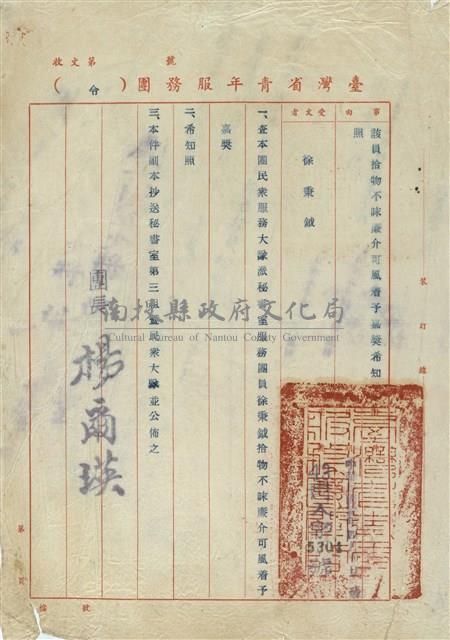 收文第　　號
臺灣省青年服務團(令)
事由
該員拾物不昧廉介可風着予嘉奬希知
照
受文者
徐秉鉞
一、查本團民衆服務大隊派秘書室服務團員徐秉鉞拾物不昧廉介可風着予
嘉奬
二、希知照
三、本件副本抄送秘書室第三組暨民衆大隊並公佈之
團長 楊爾瑛
5304
號
裝訂線
第 頁
檔 號
南投縣政府文化局
Cultural Bureau of Nantou County Government